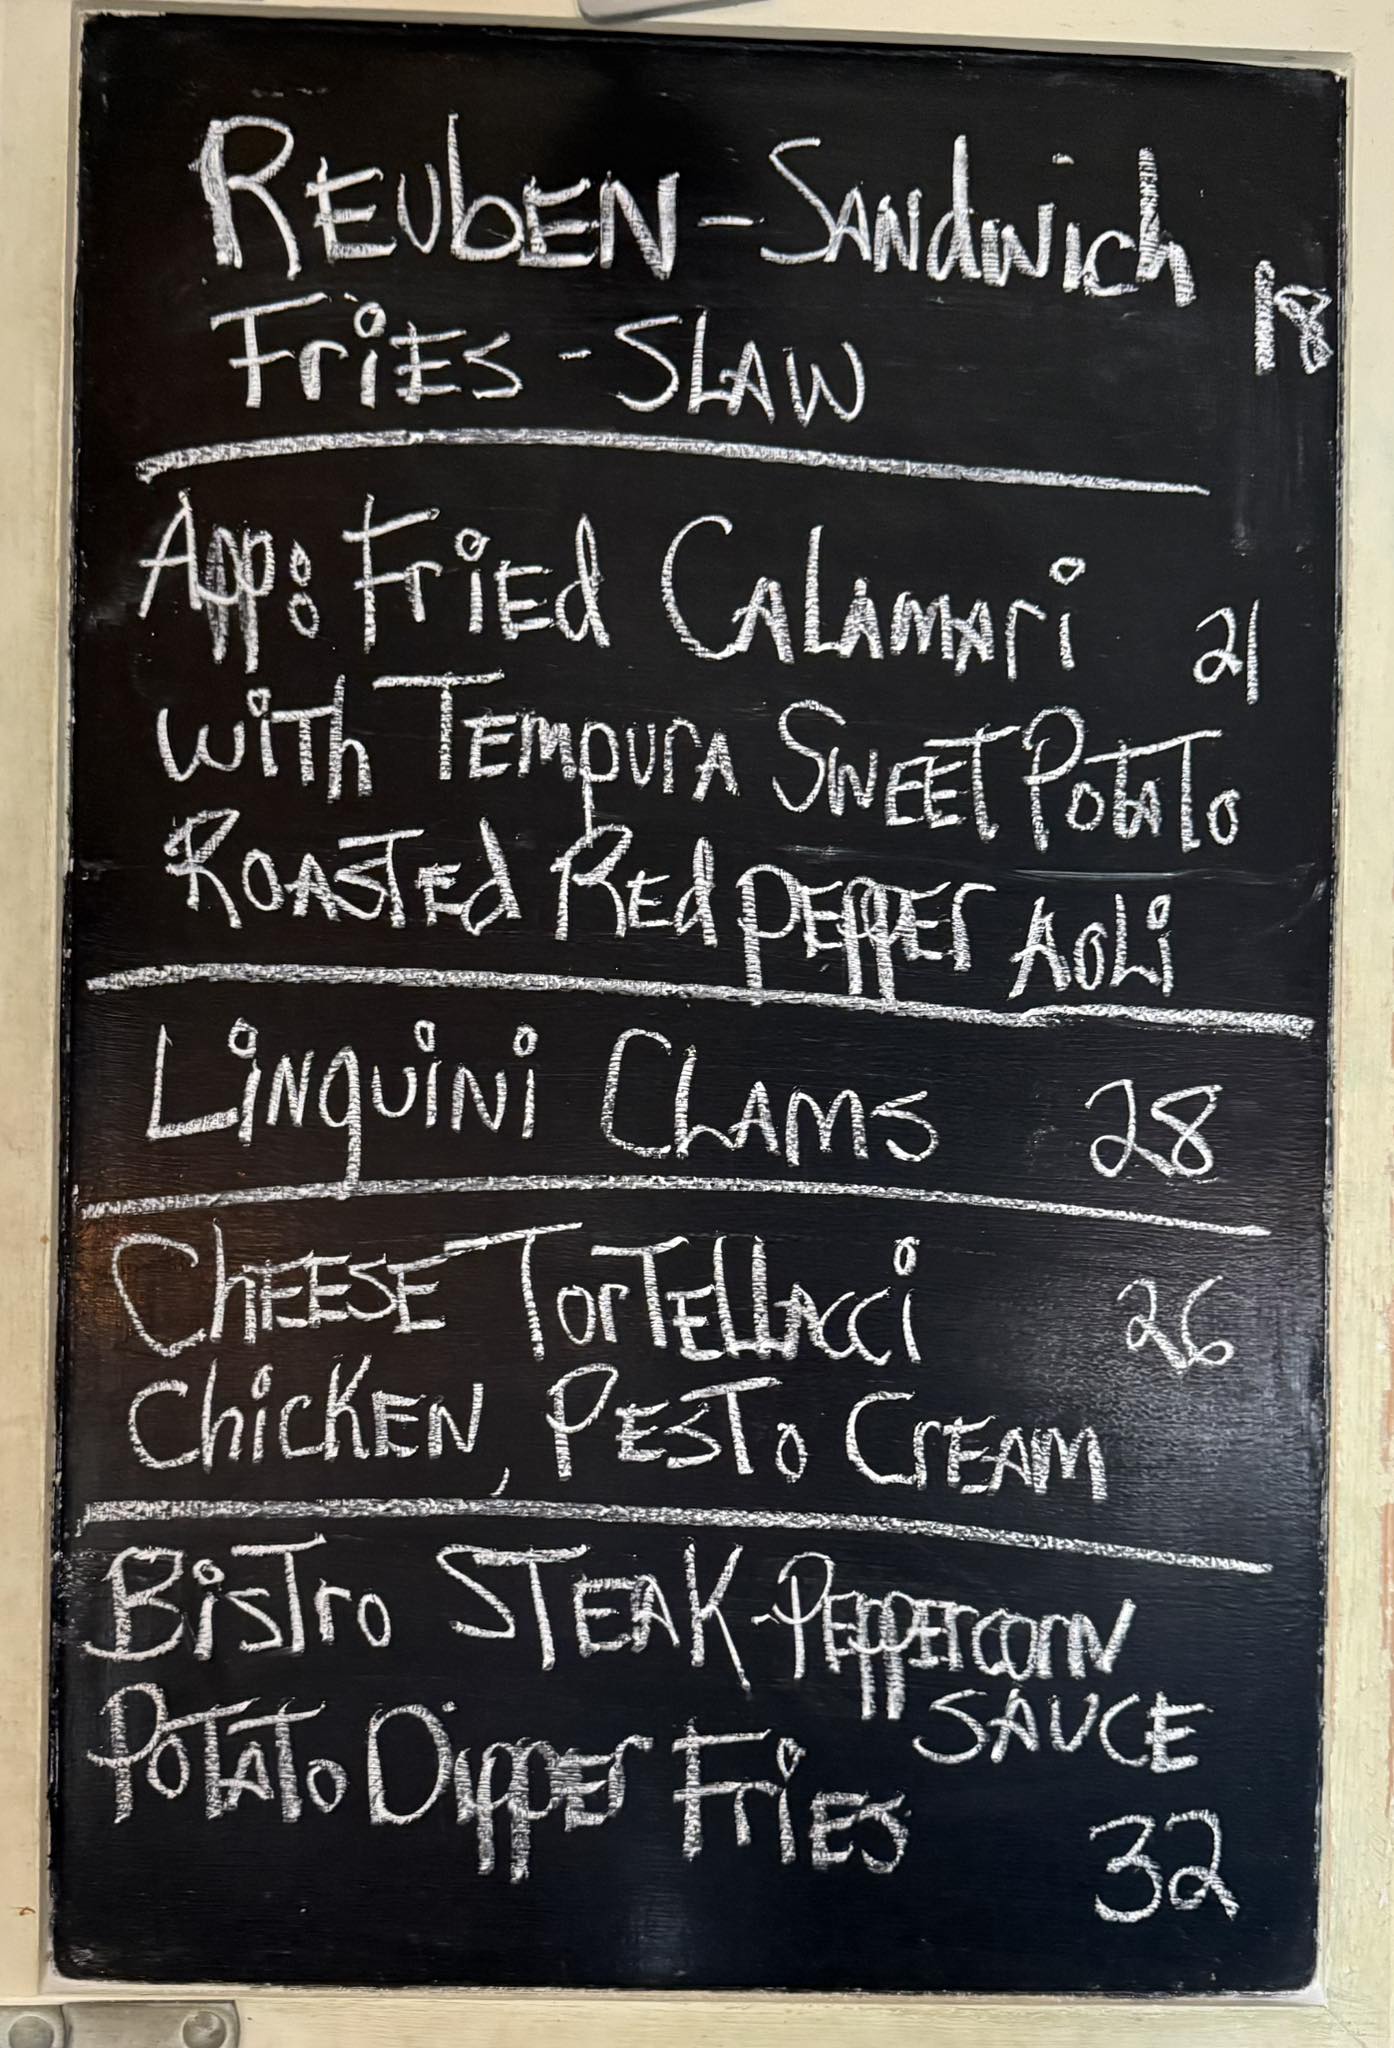 REUBEN - SANdwich 18
FriES - SLAW
App: FriEd CALAMAri 21
with TEMpurA SWEET PotATo
ROASTEd REd PEPPEr AoLi
LiNquiNi CLAMS 28
ChEESE TorTELLAcci 26
ChicKEN, PESTo CrEAM
BiSTro STEAK - PEppErcorN
SAUCE
PoTATo DippEr FriES
32